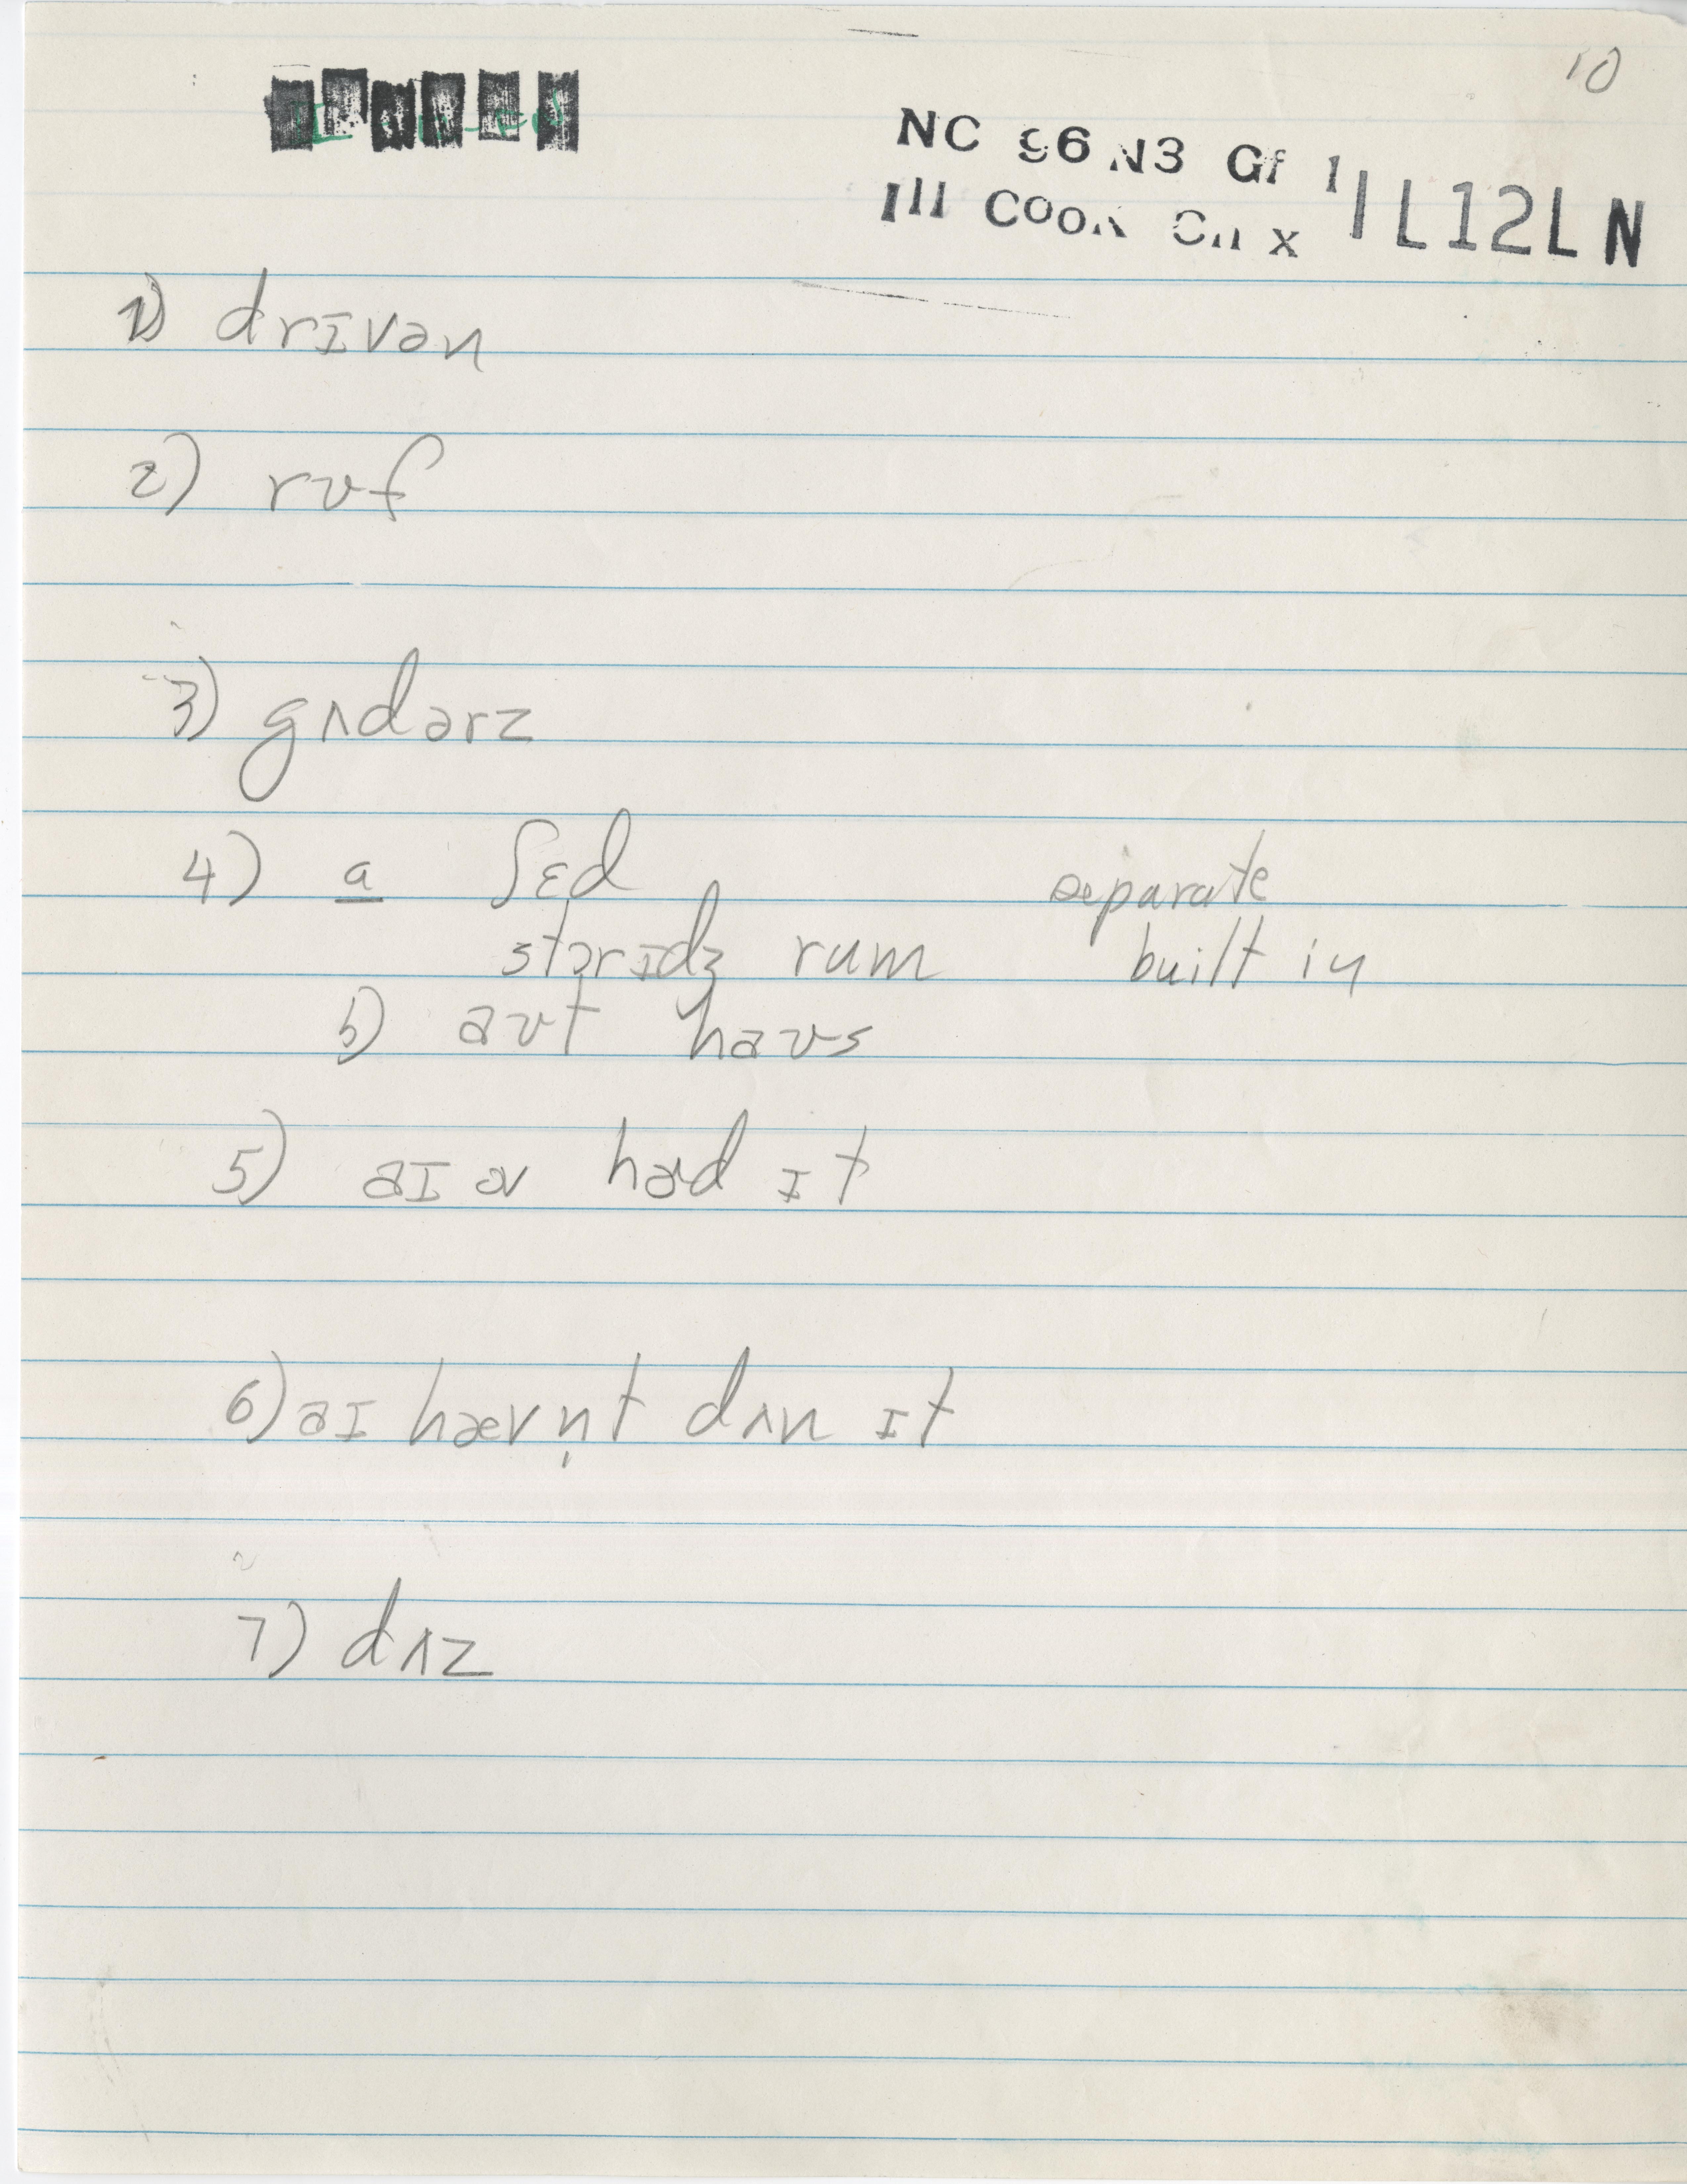 10
NC 96 N3 Gf 1
Ill Cook
IL12LN
1) drɪvən
2) rʊf
3) gʌdərz
4) a ʃɛd separate
stɔrɪdʒ rum built in
b) aʊt haʊs
5) aɪ v hæd ɪt
6) aɪ hævn̩t dʌn ɪt
7) dʌz